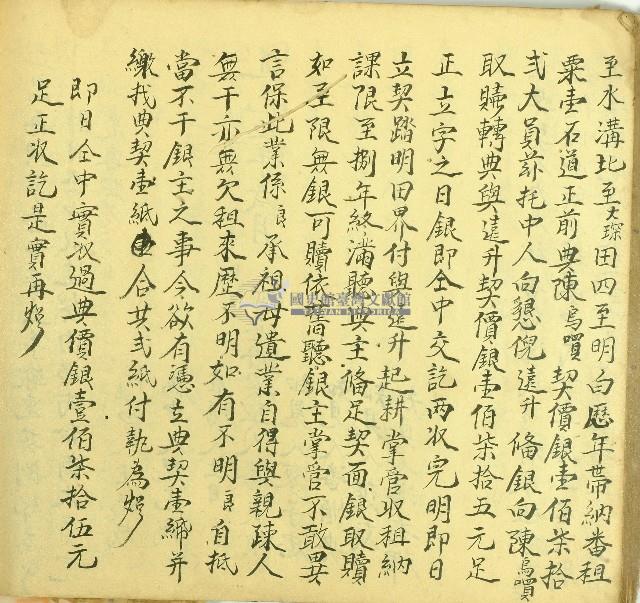 至水溝北至大琛田四至明白歷年帶納番租
粟壹石道正前典陳烏嘪契價銀壹佰柒拾
弍大員茲托中人向懇倪遠升俻銀向陳烏嘪
取贖轉典與遠升契價銀壹佰柒拾五元足
正立字之日銀即仝中交訖兩收完明即日
立契踏明田界付與遠升起耕掌管收租納
課限至捌年終滿聽典主俻足契面銀取贖
如至限無銀可贖依舊聽銀主掌管不敢異
言保此業係良承祖母遺業自得與親疎人
無干亦無欠租來歷不明如有不明良自抵
當不干銀主之事今欲有憑立典契壹紙并
繳找典契壹紙合共弍紙付執為炤
即日仝中實收過典價銀壹佰柒拾伍元
足正收訖是實再炤
國史館臺灣文獻館
TAIWAN HISTORICA